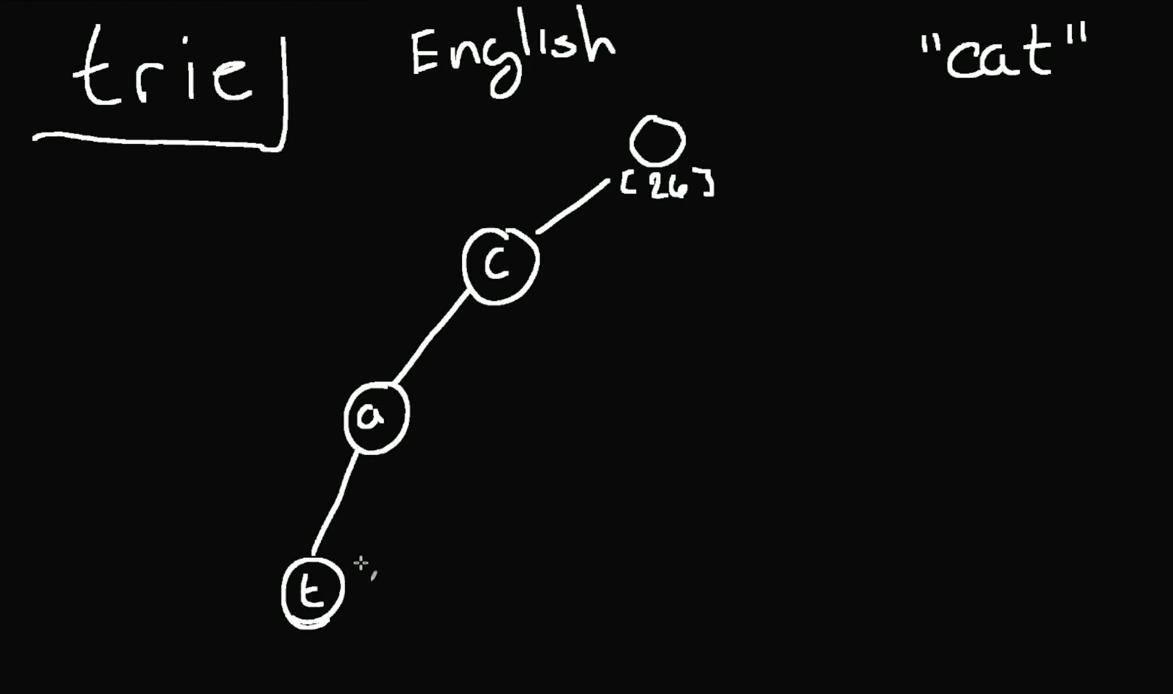 trie English "cat"
[26]
c
a
t